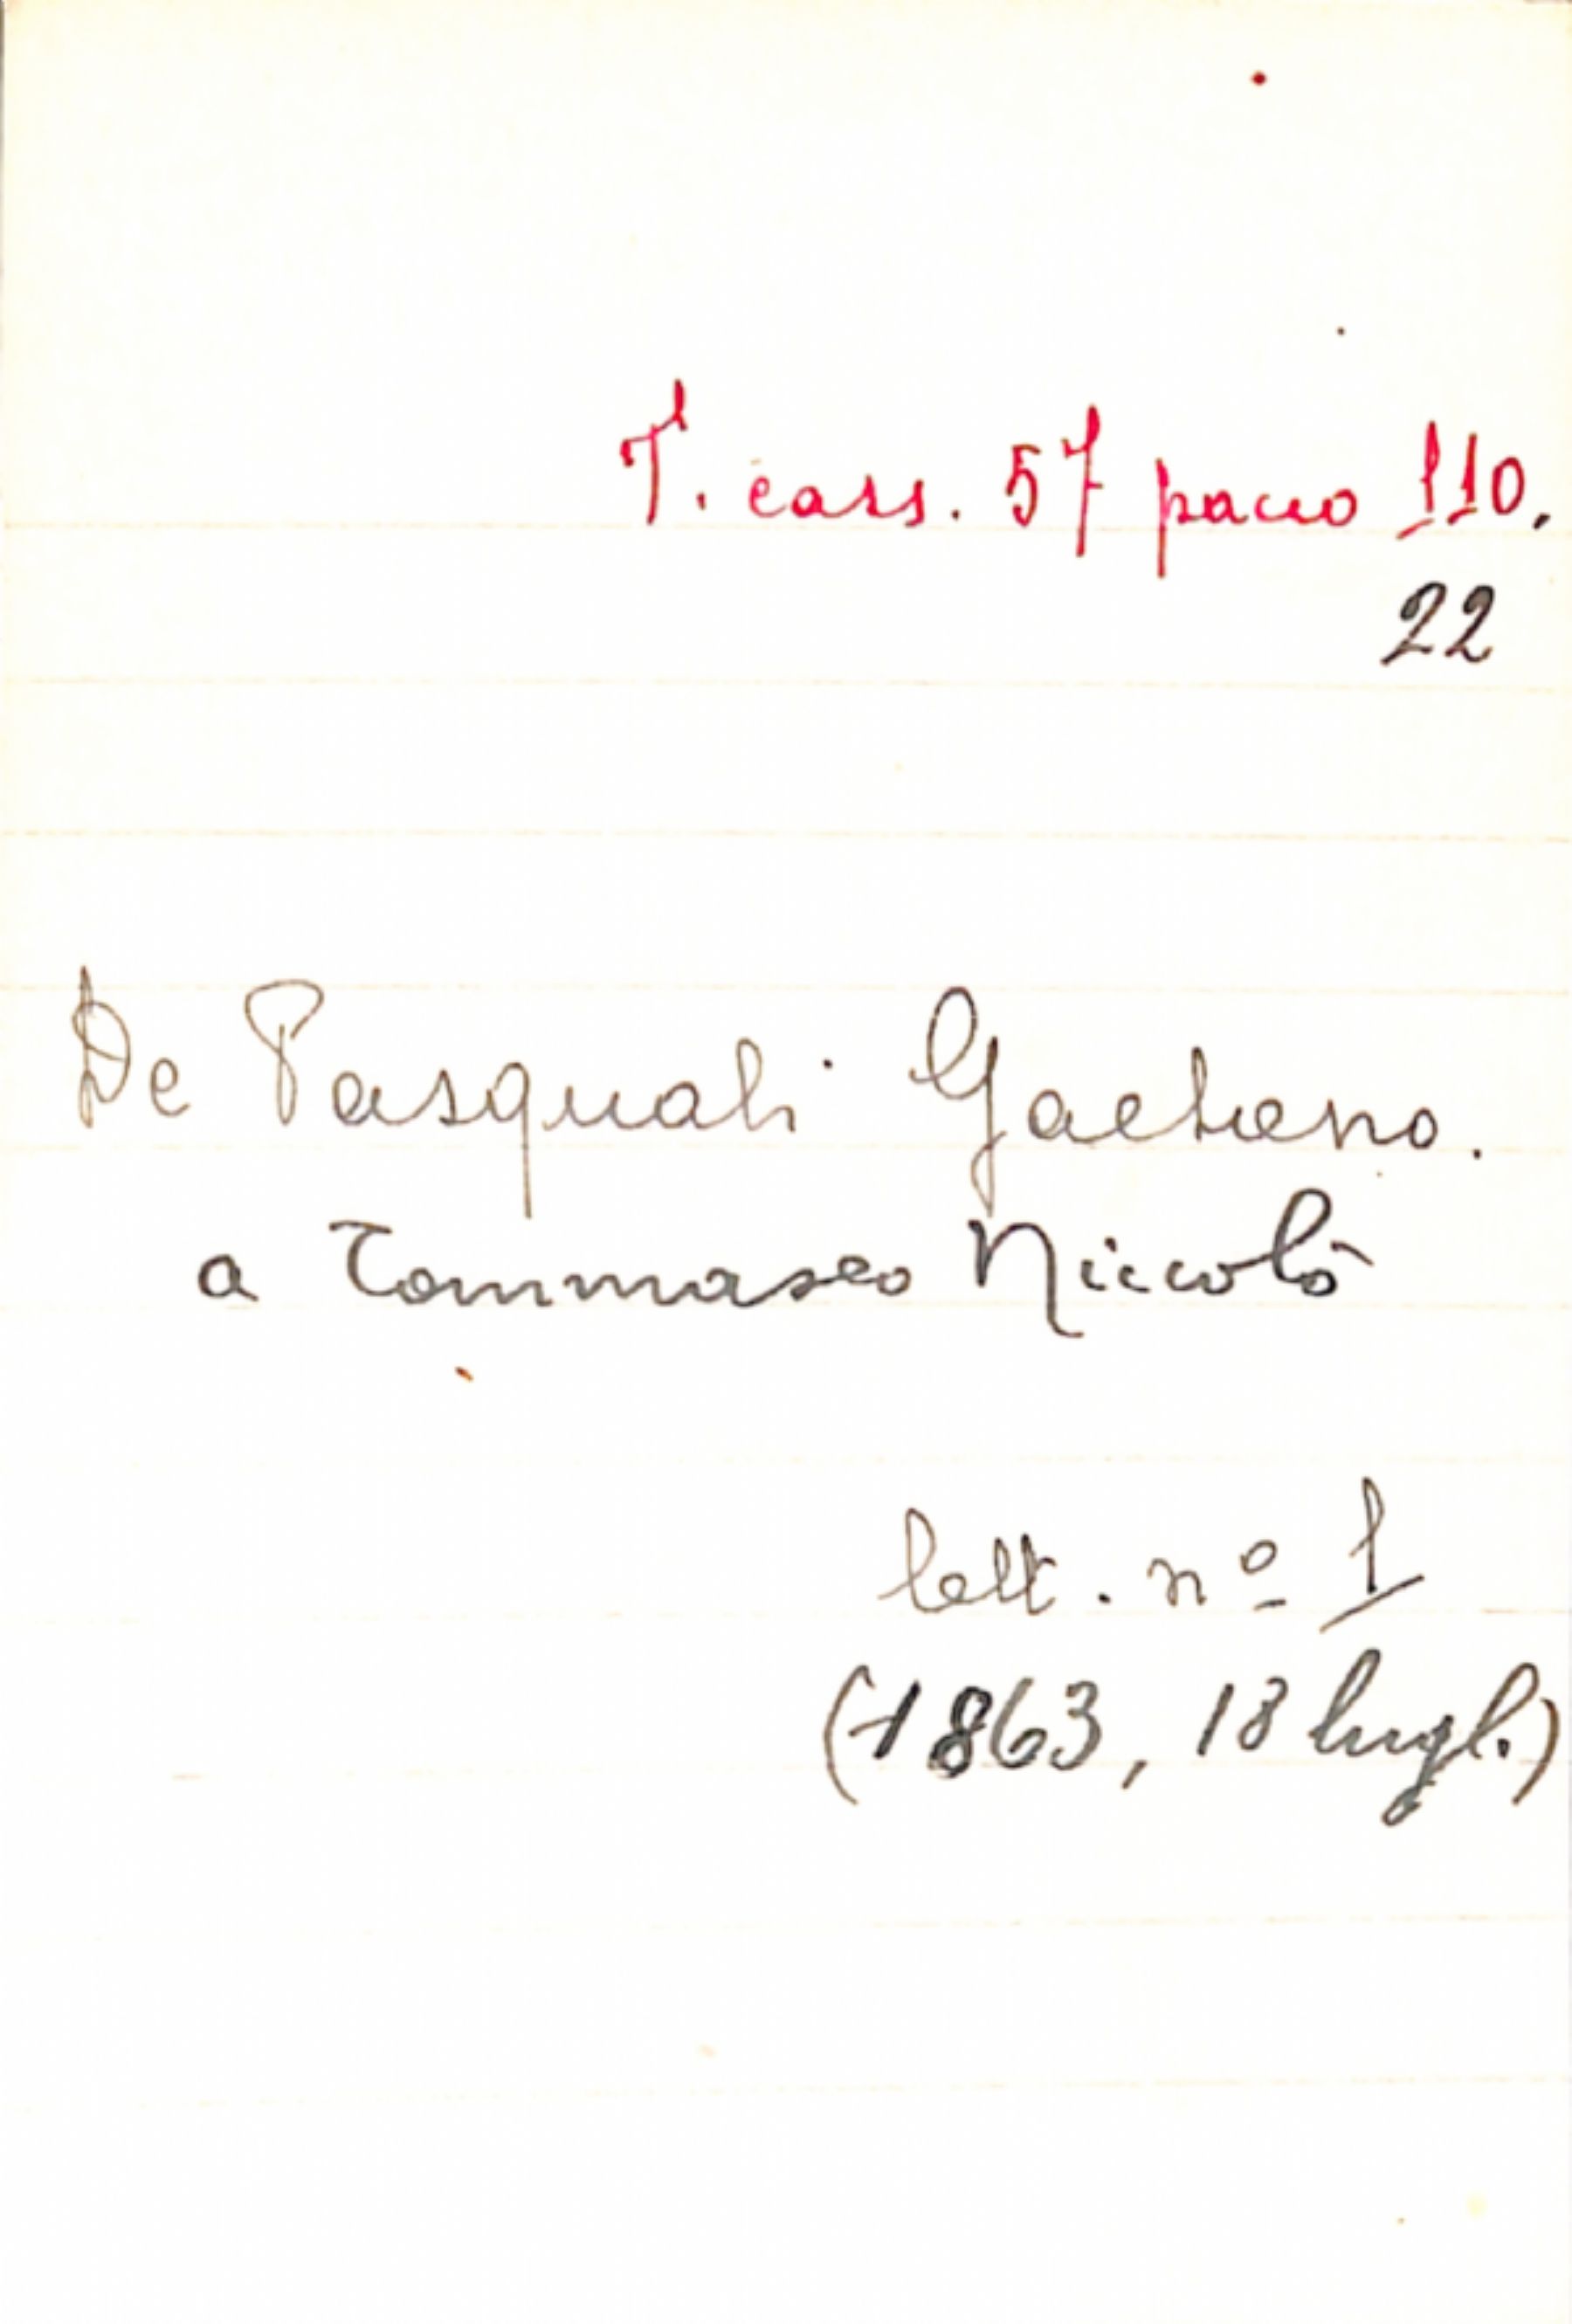 T. cass. 57 pacco 110.
22
De Pasquali Gaetano.
a Tommaseo Niccolò
lett. nº 1
(1863, 18 lugl.)